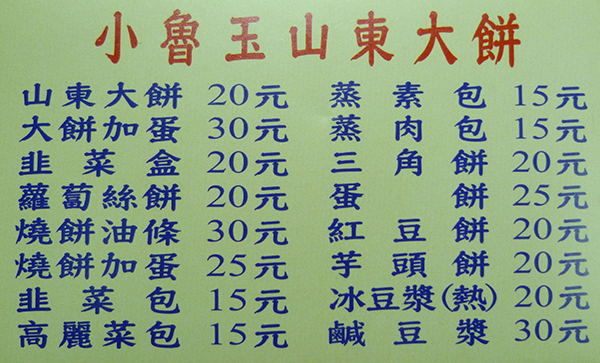 小魯玉山東大餅
山東大餅 20元 蒸素包 15元
大餅加蛋 30元 蒸肉包 15元
韭菜盒 20元 三角餅 20元
蘿蔔絲餅 20元 蛋餅 25元
燒餅油條 30元 紅豆餅 20元
燒餅加蛋 25元 芋頭餅 20元
韭菜包 15元 冰豆漿(熱) 20元
高麗菜包 15元 鹹豆漿 30元